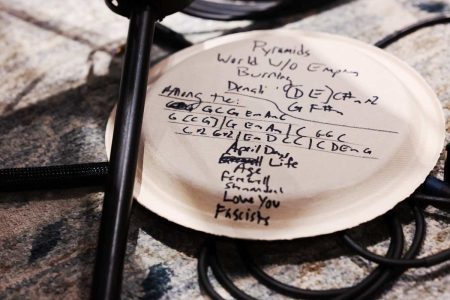 Pyramids
World W/O Empires
Burning
Denali (D E) C#m
G F#m
Among the: 
G C G Em Am C
G C G | G Em Am | C G G C
| Em D C C | C D Em G
April Dazi
Life
Age
Farewell
Love You
Fascists